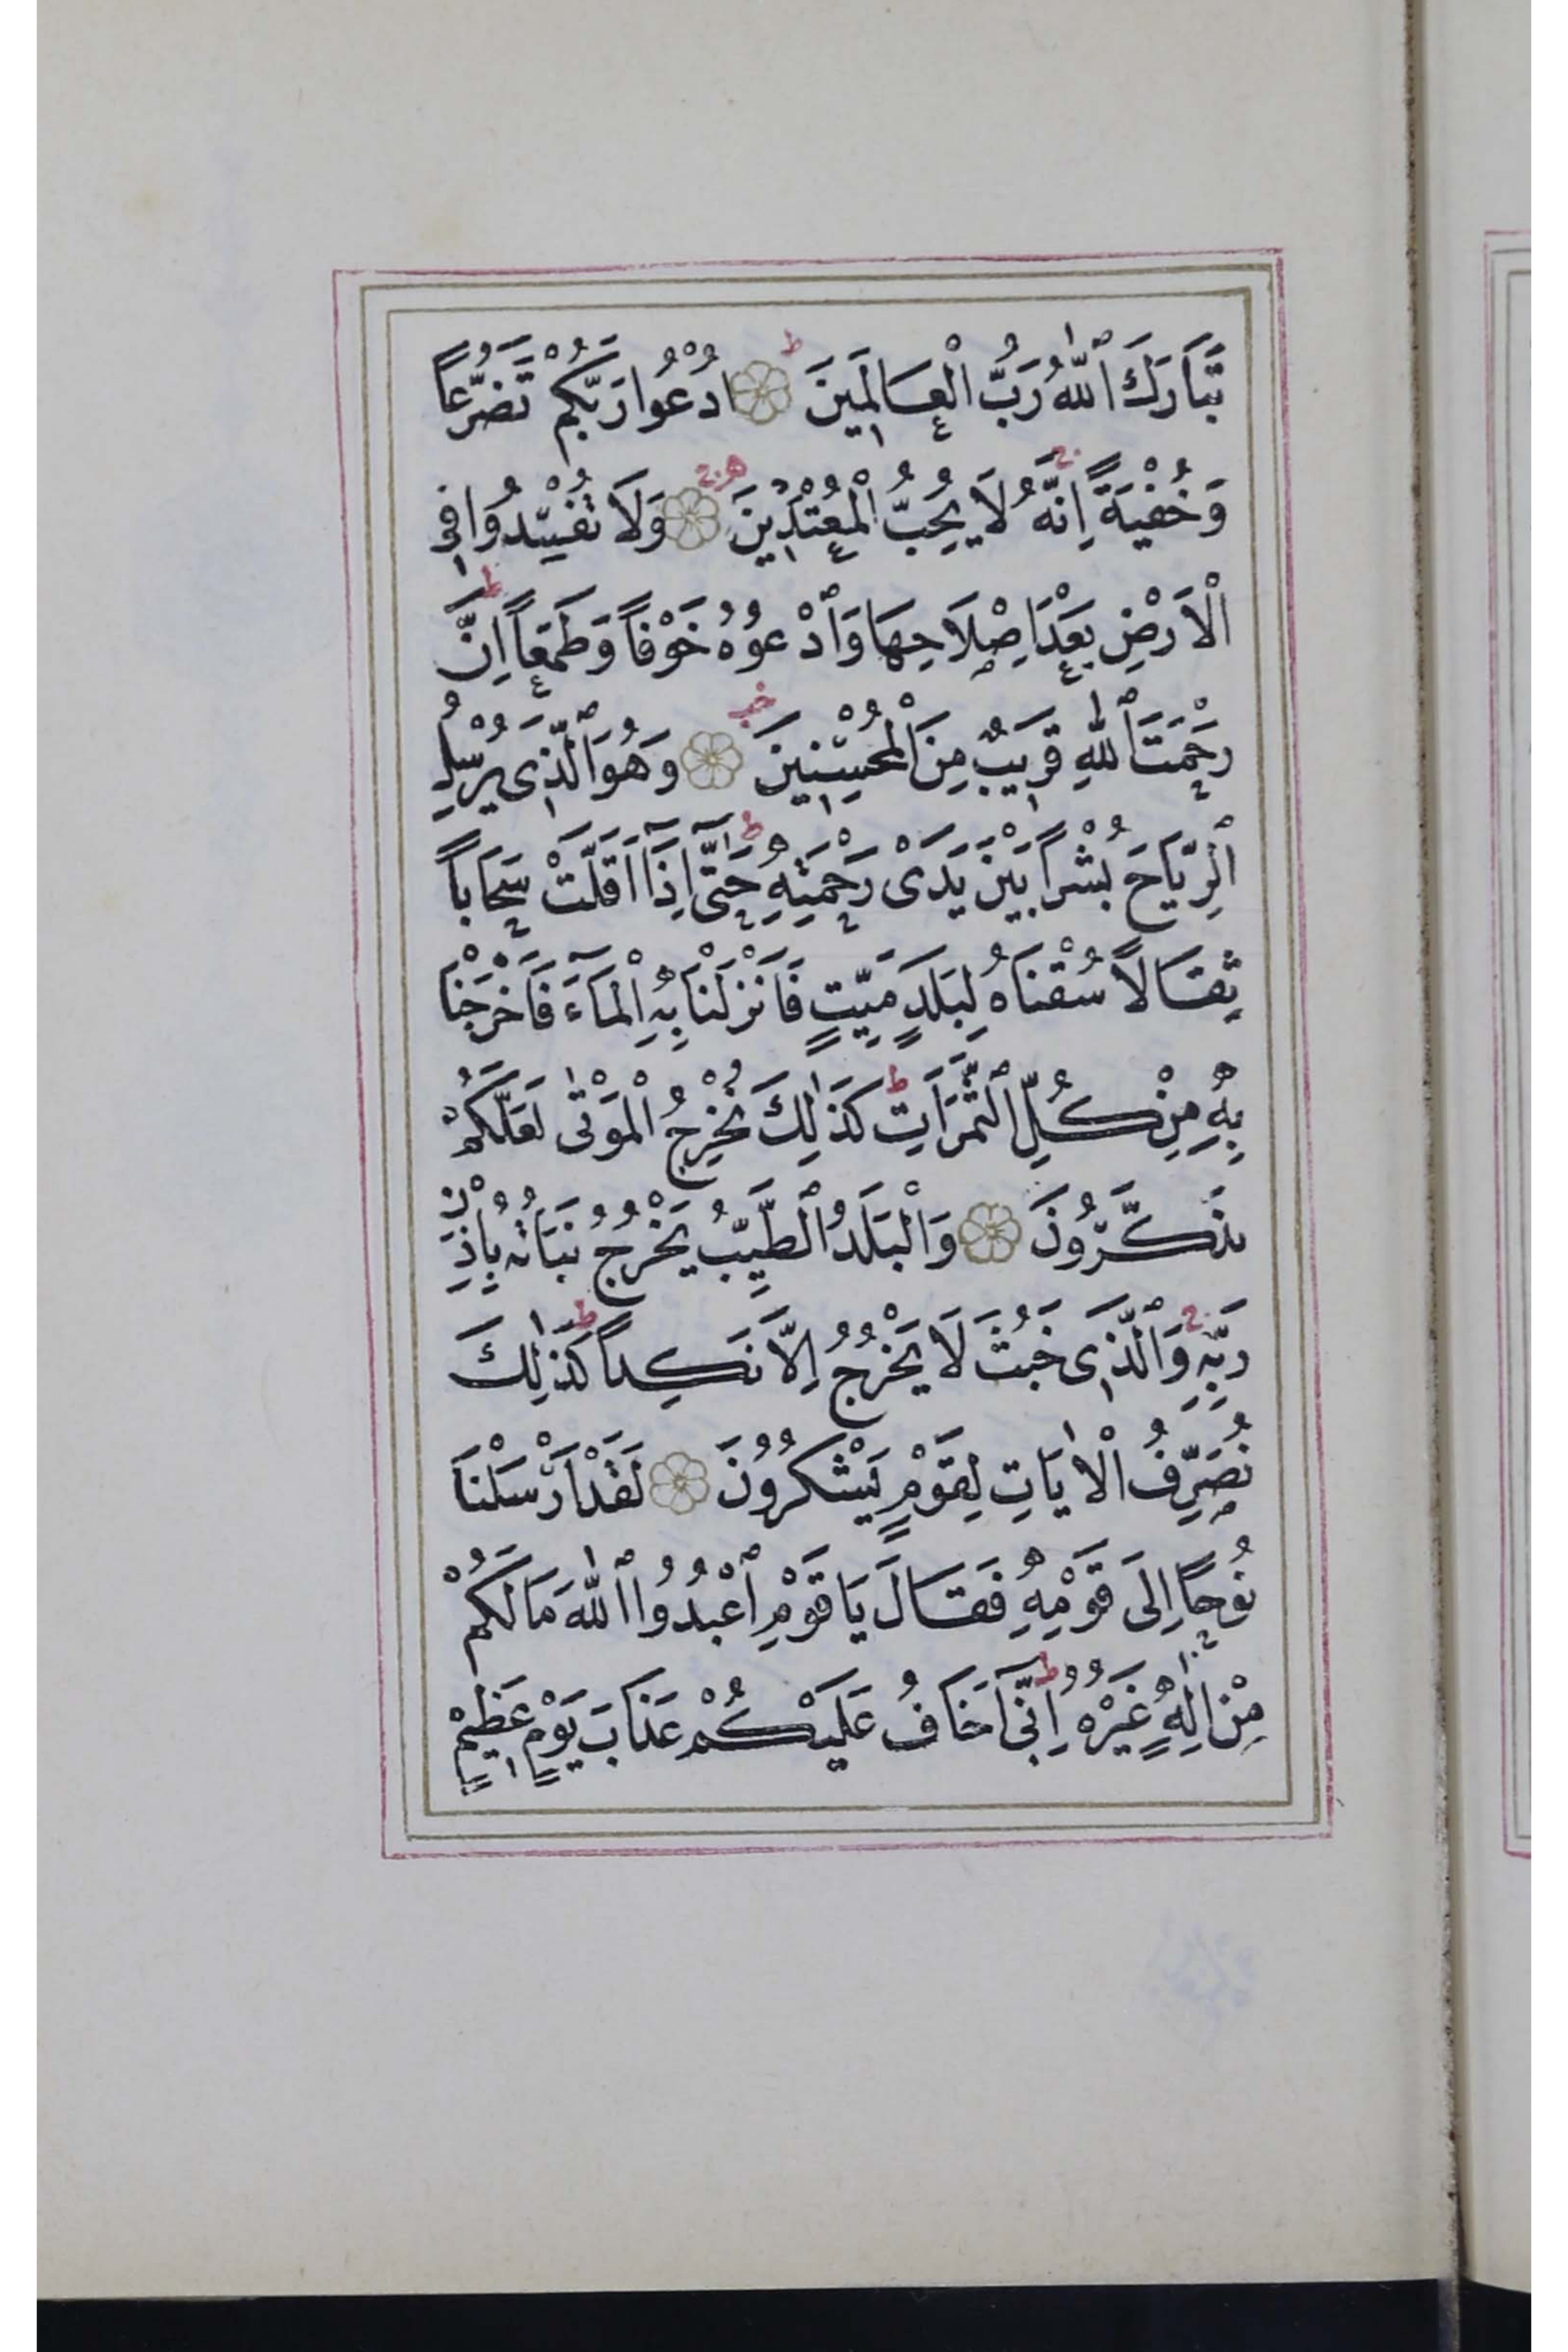 تَبَارَكَ ٱللّٰهُ رَبُّ الْعَالَمِينَ ۝ ادْعُوا رَبَّكُمْ تَضَرُّعاً
وَخُفْيَةً اِنَّهُ لَا يُحِبُّ الْمُعْتَدِينَ ۝ وَلَا تُفْسِدُوا فِي
الْاَرْضِ بَعْدَ اِصْلَاحِهَا وَٱدْعُوهُ خَوْفاً وَطَمَعاً اِنَّ
رَحْمَتَ ٱللّٰهِ قَرِيبٌ مِنَ الْمُحْسِنِينَ ۝ وَهُوَ ٱلَّذِى يُرْسِلُ
ٱلرِّيَاحَ بُشْراً بَيْنَ يَدَىْ رَحْمَتِهِ حَتَّى اِذَٓا اَقَلَّتْ سَحَاباً
ثِقَالاً سُقْنَاهُ لِبَلَدٍ مَيِّتٍ فَاَنْزَلْنَا بِهِ الْمَٓاءَ فَاَخْرَجْنَا
بِهِ مِنْ كُلِّ ٱلثَّمَرَاتِ كَذٰلِكَ نُخْرِجُ الْمَوْتٰى لَعَلَّكُمْ
تَذَكَّرُونَ ۝ وَالْبَلَدُ ٱلطَّيِّبُ يَخْرُجُ نَبَاتُهُ بِاِذْنِ
رَبِّهِ وَٱلَّذِى خَبُثَ لَا يَخْرُجُ اِلَّا نَكِداً كَذٰلِكَ
نُصَرِّفُ الْاٰيَاتِ لِقَوْمٍ يَشْكُرُونَ ۝ لَقَدْ اَرْسَلْنَا
نُوحاً اِلَى قَوْمِهِ فَقَالَ يَا قَوْمِ ٱعْبُدُوا ٱللّٰهَ مَا لَكُمْ
مِنْ اِلٰهٍ غَيْرُهُ اِنِّٓى اَخَافُ عَلَيْكُمْ عَذَابَ يَوْمٍ عَظِيمٍ